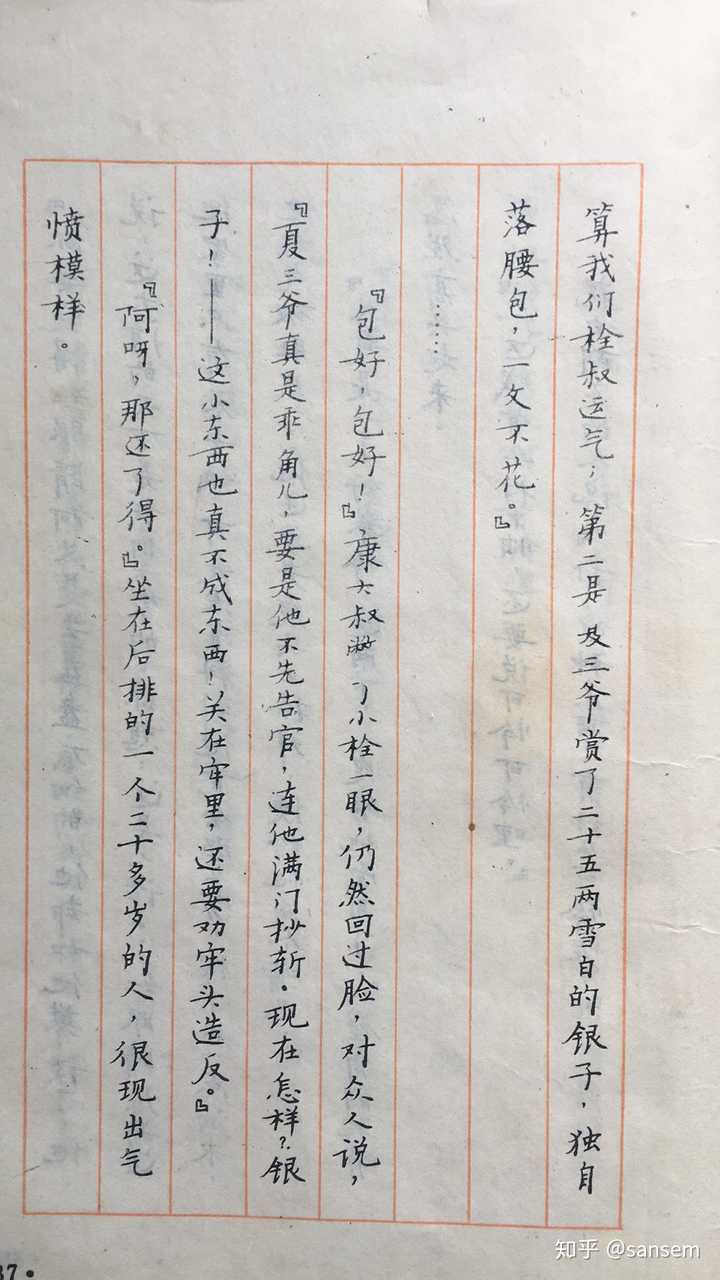 算我们栓叔运气；第二是及三爷赏了二十五两雪白的银子，独自
落腰包，一文不花。』
……
『包好，包好！』康大叔瞥了小栓一眼，仍然回过脸，对众人说，
『夏三爷真是乖角儿，要是他不先告官，连他满门抄斩。现在怎样？银
子！——这小东西也真不成东西！关在牢里，还要劝牢头造反。』
『阿呀，那还了得。』坐在后排的一个二十多岁的人，很现出气
愤模样。
37·
知乎 @sansem